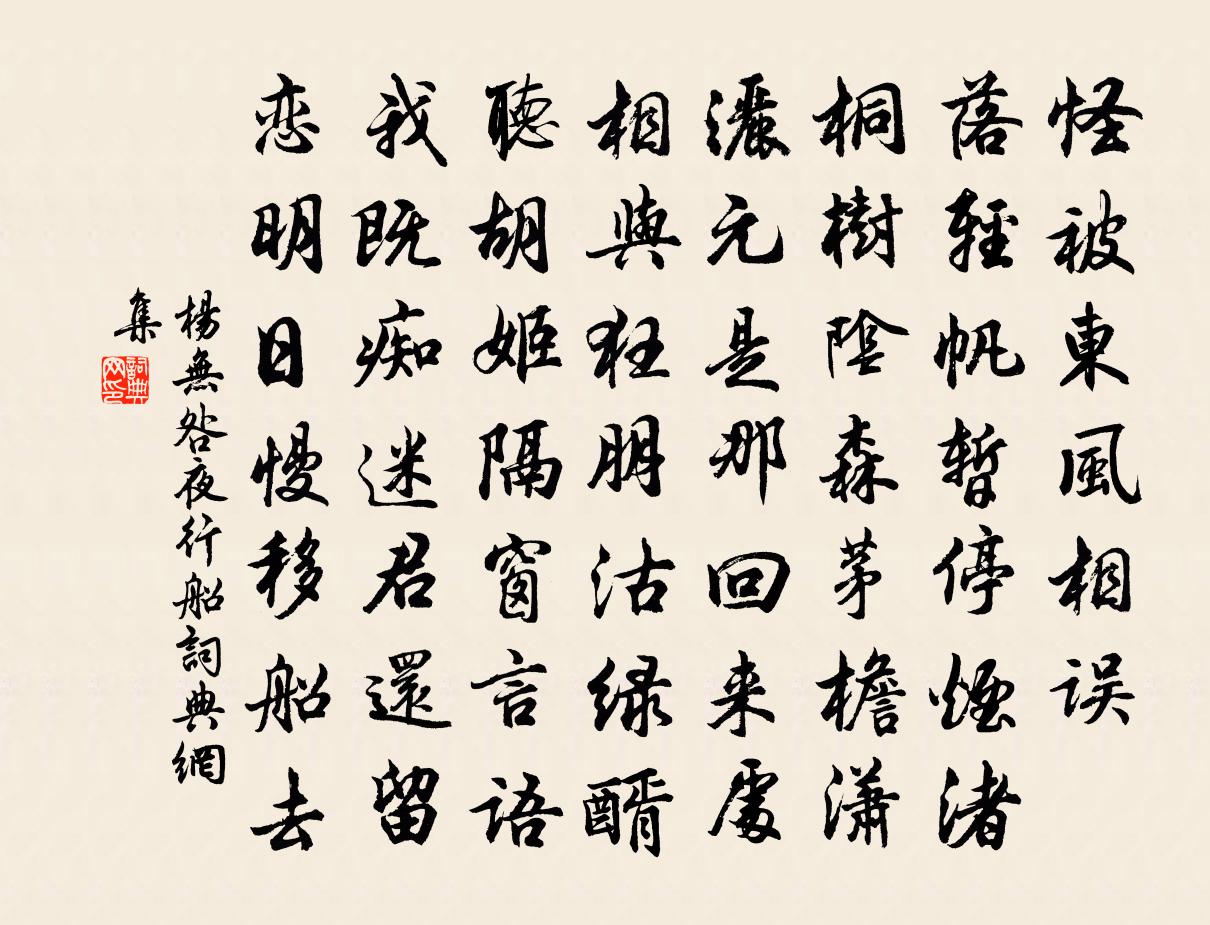 怪被東風相误
落輕帆暫停煙渚
桐樹陰森茅檐潇
灑元是那回来處
相與狂朋沽緑醑
聽胡姬隔窗言语
我既痴迷君還留
恋明日慢移船去
楊無咎夜行船詞典網
集
詞典网印